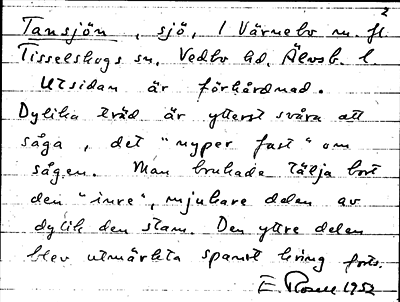 2
Tansjön, sjö, / Värnebo m. fl
Tisselskogs sn. Vedbo hd. Älvsb. l.
Utsidan är förhårdnad.
Dylika träd är ytterst svåra att
såga, det "nyper fast" om
sågen. Man brukade tälja bort
den "inre", mjukare delen av
dylik den stam. Den yttre delen
blev utmärkta spant kring forts.
E 1952